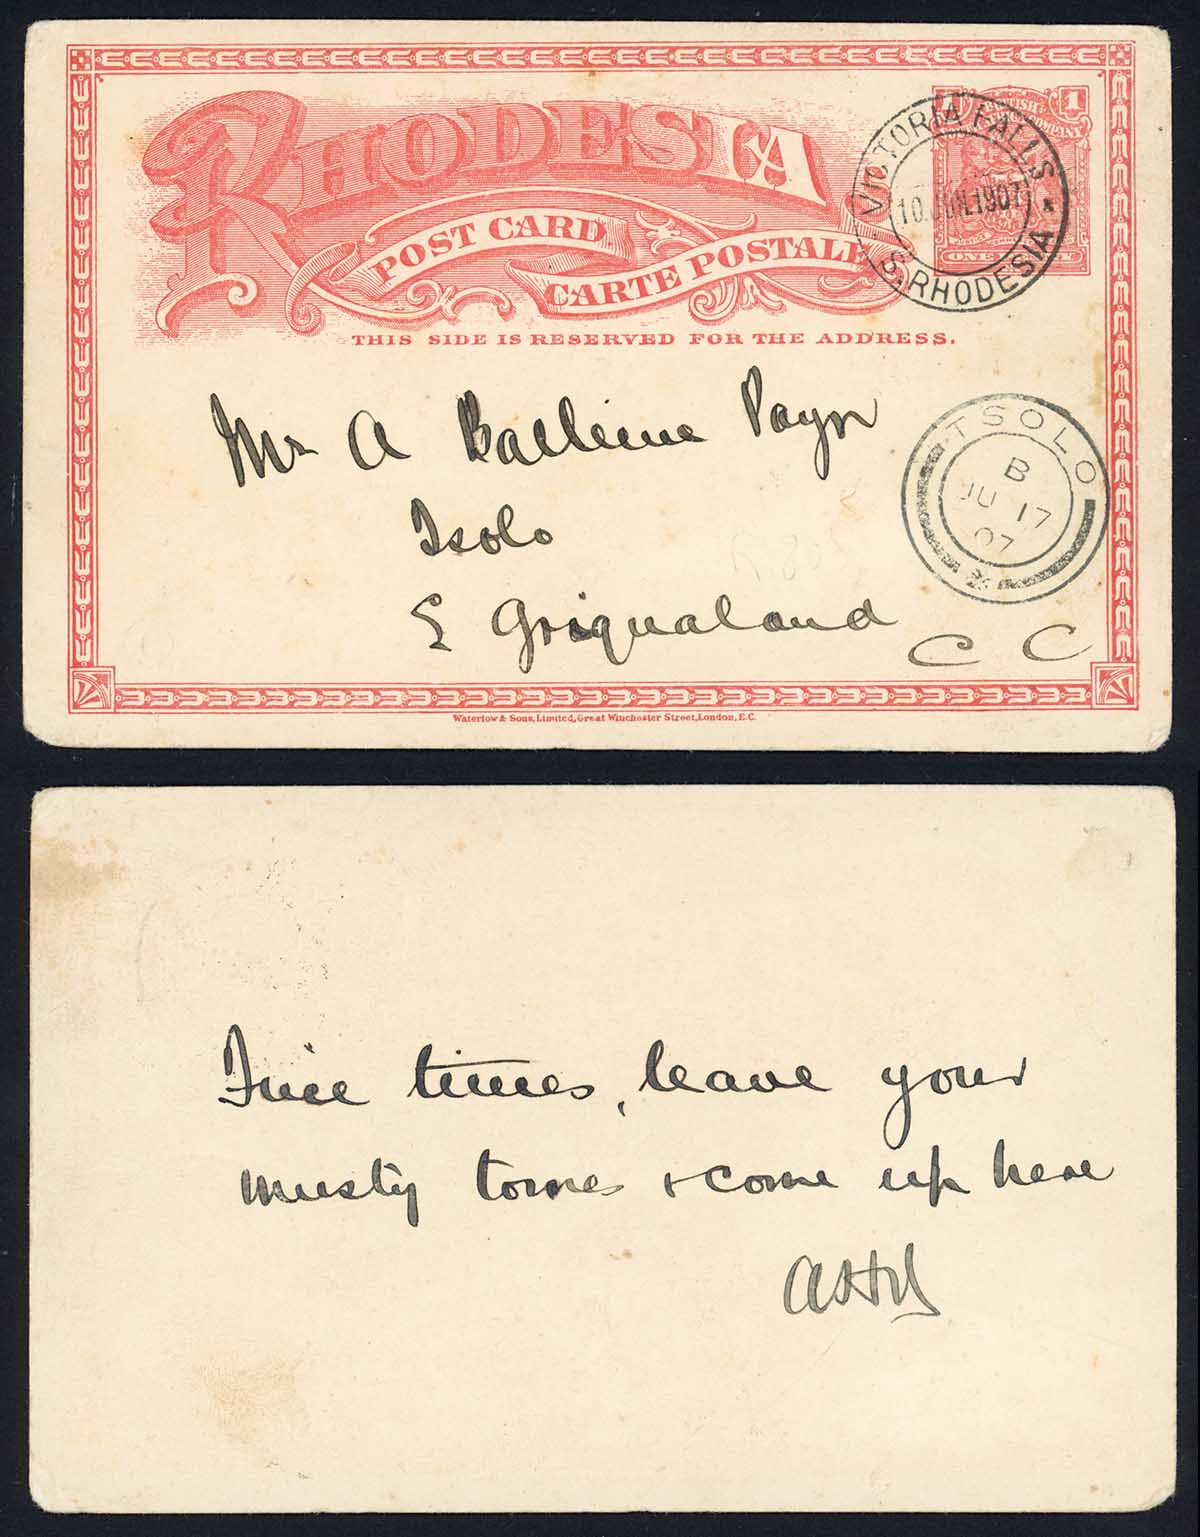 RHODESIA
POST CARD
CARTE POSTALE
THIS SIDE IS RESERVED FOR THE ADDRESS.
1
COMPANY
ONE
VICTORIA FALLS
10.JUN.1907
S. RHODESIA
Mr A Balleine Payn
Tsolo
E Griqualand
C C
TSOLO
B
JU 17
07
Waterlow & Sons, Limited, Great Winchester Street, London, E.C.
Fine times, leave your
musty tomes & come up here